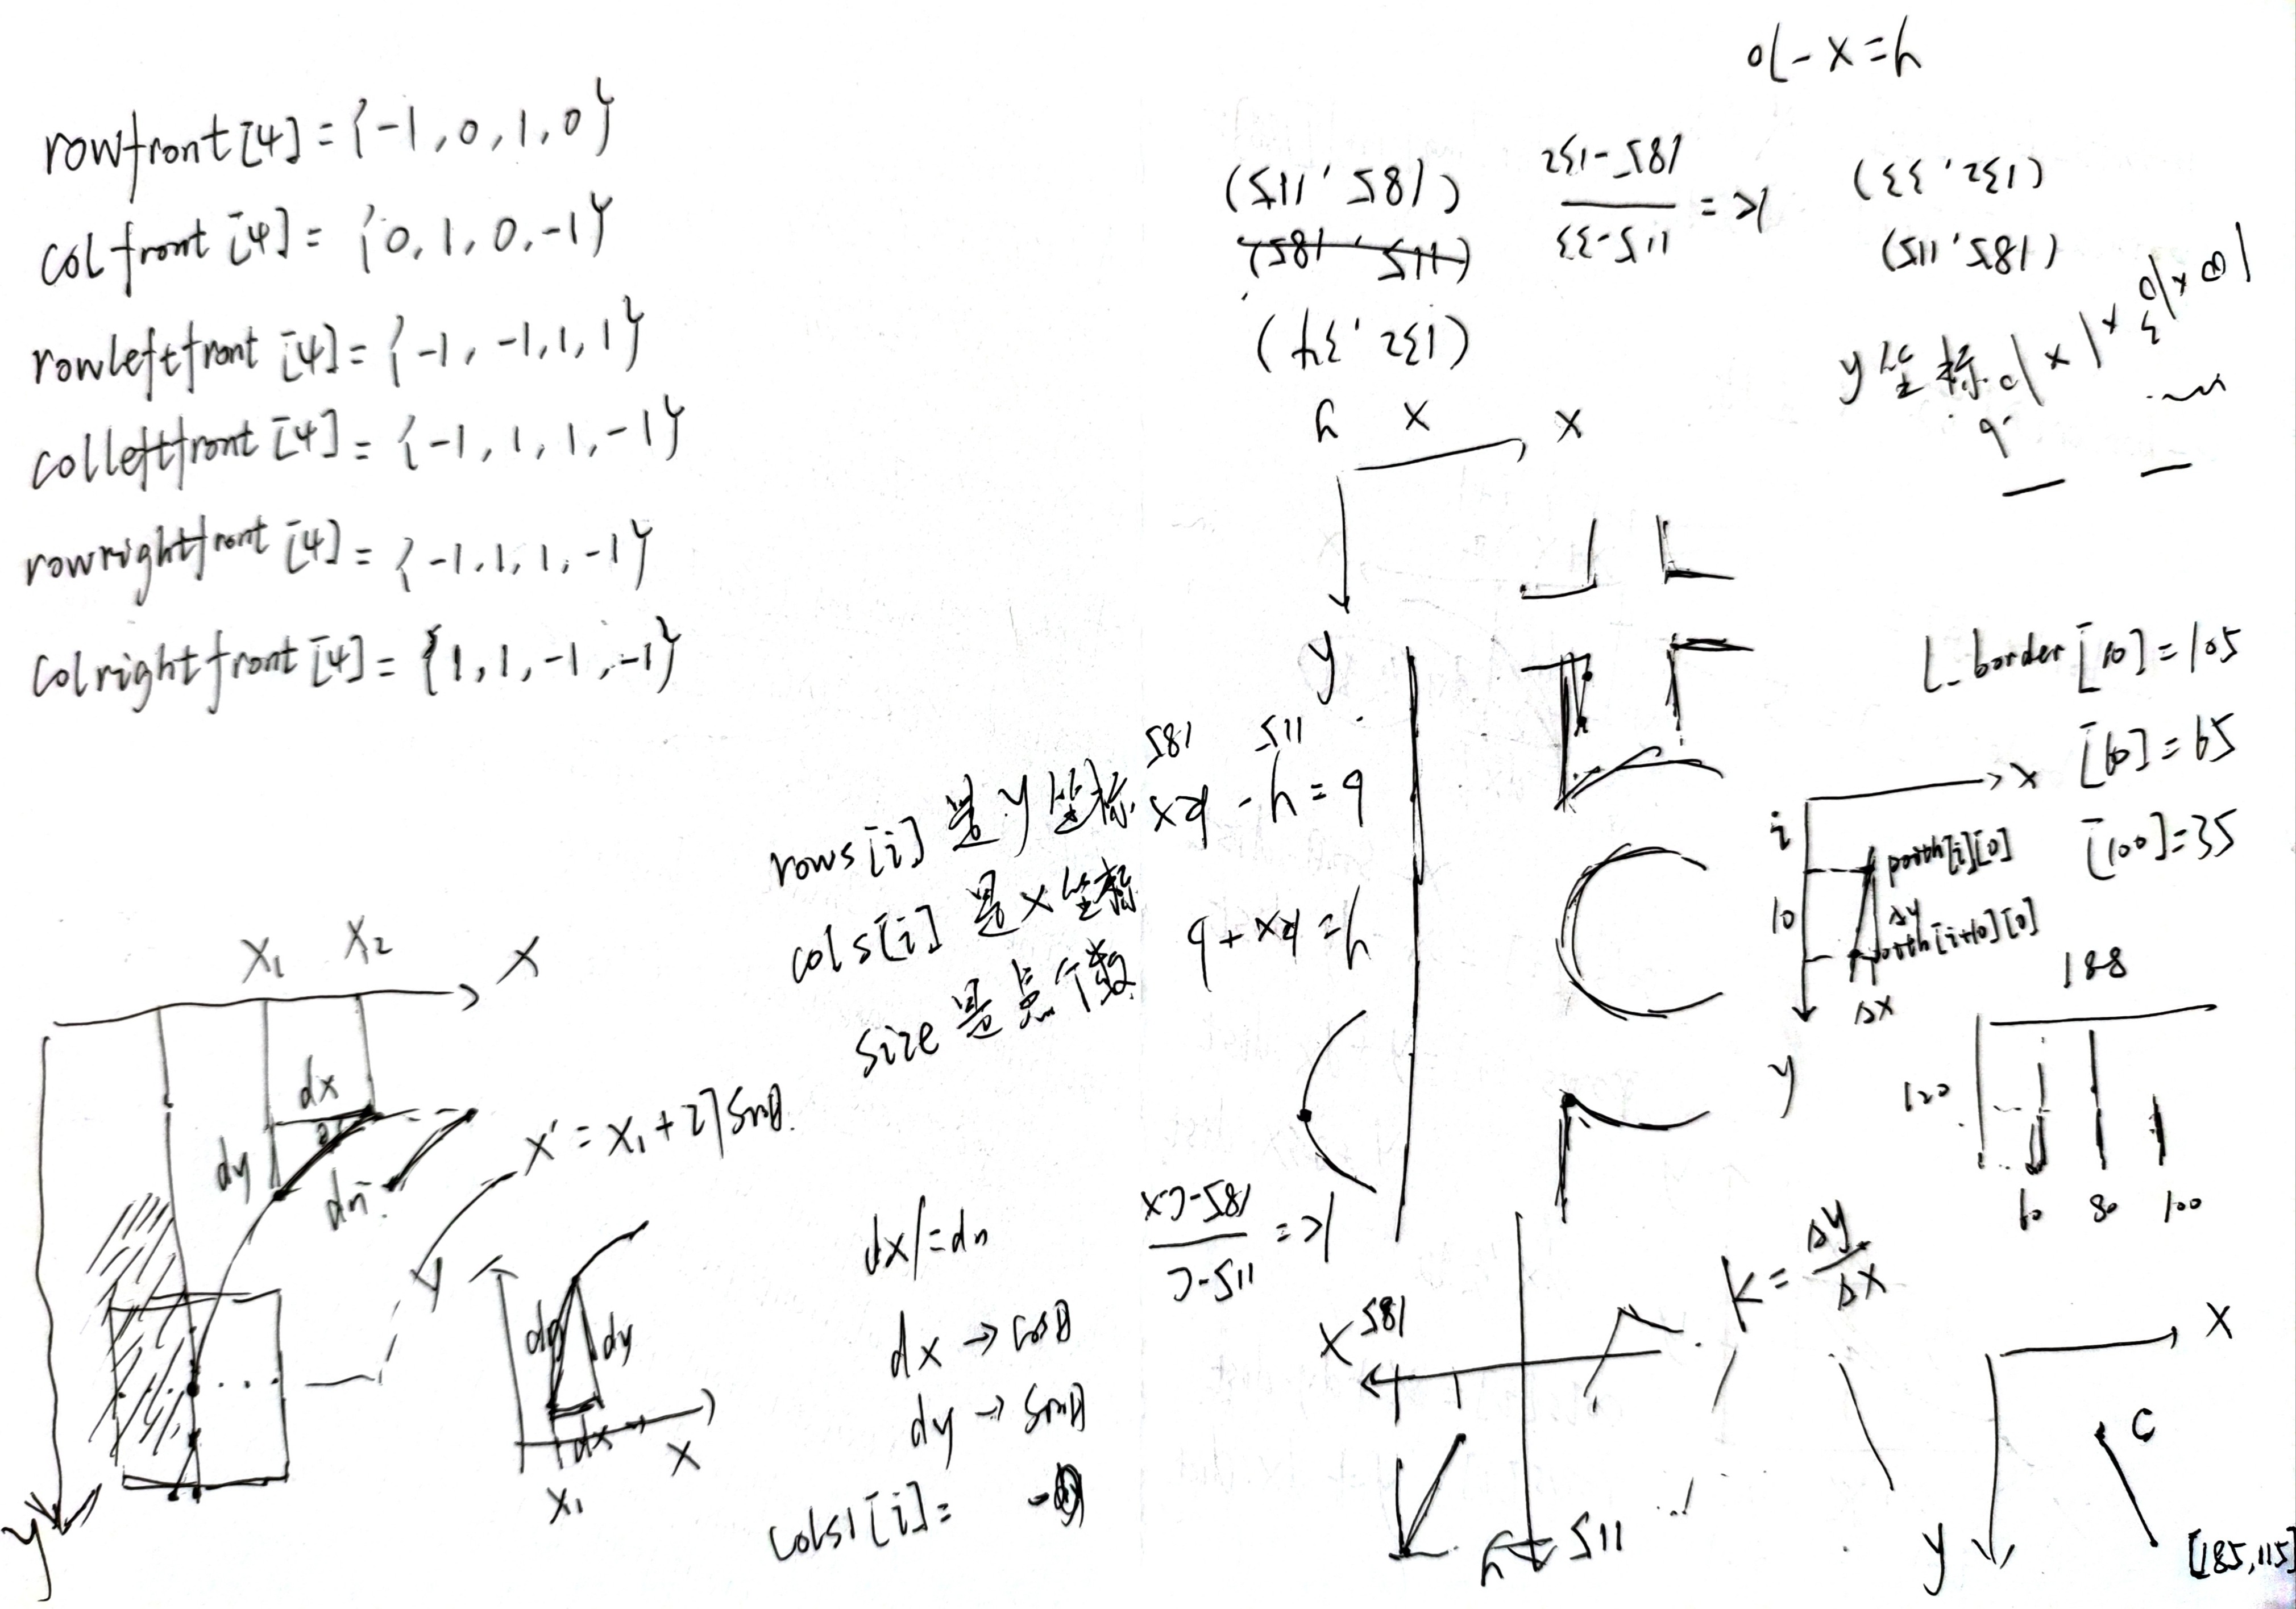 rowfront[4]={-1,0,1,0}
colfront[4]={0,1,0,-1}
rowleftfront[4]={-1,-1,1,1}
colleftfront[4]={-1,1,1,-1}
rowrightfront[4]={-1,1,1,-1}
colrightfront[4]={1,1,-1,-1}
y=x-10
(185,115)
(115,185)
(132,34)
y x
K=
115-33
185-132
(132,33)
(185,115)
y坐标
x
y
L_border[10]=105
[60]=65
[100]=35
x
i
10
path[i][0]
Δy
path[i+10][0]
Δx
y
188
120
60 80 100
185 115
rows[i]是y坐标
kx-y=b
cols[i]是x坐标
y=kx+b
size是点个数
x1 x2 x
dx
dy
dn
x'=x1+27sinθ.
y
y
dn dy
dx
x1
x
dx/=dn
dx→cosθ
dy→sinθ
cols1[i]=
K=
115-C
185-Cx
x 185
y 115
K=Δy/Δx
x
C
y
[185,115]